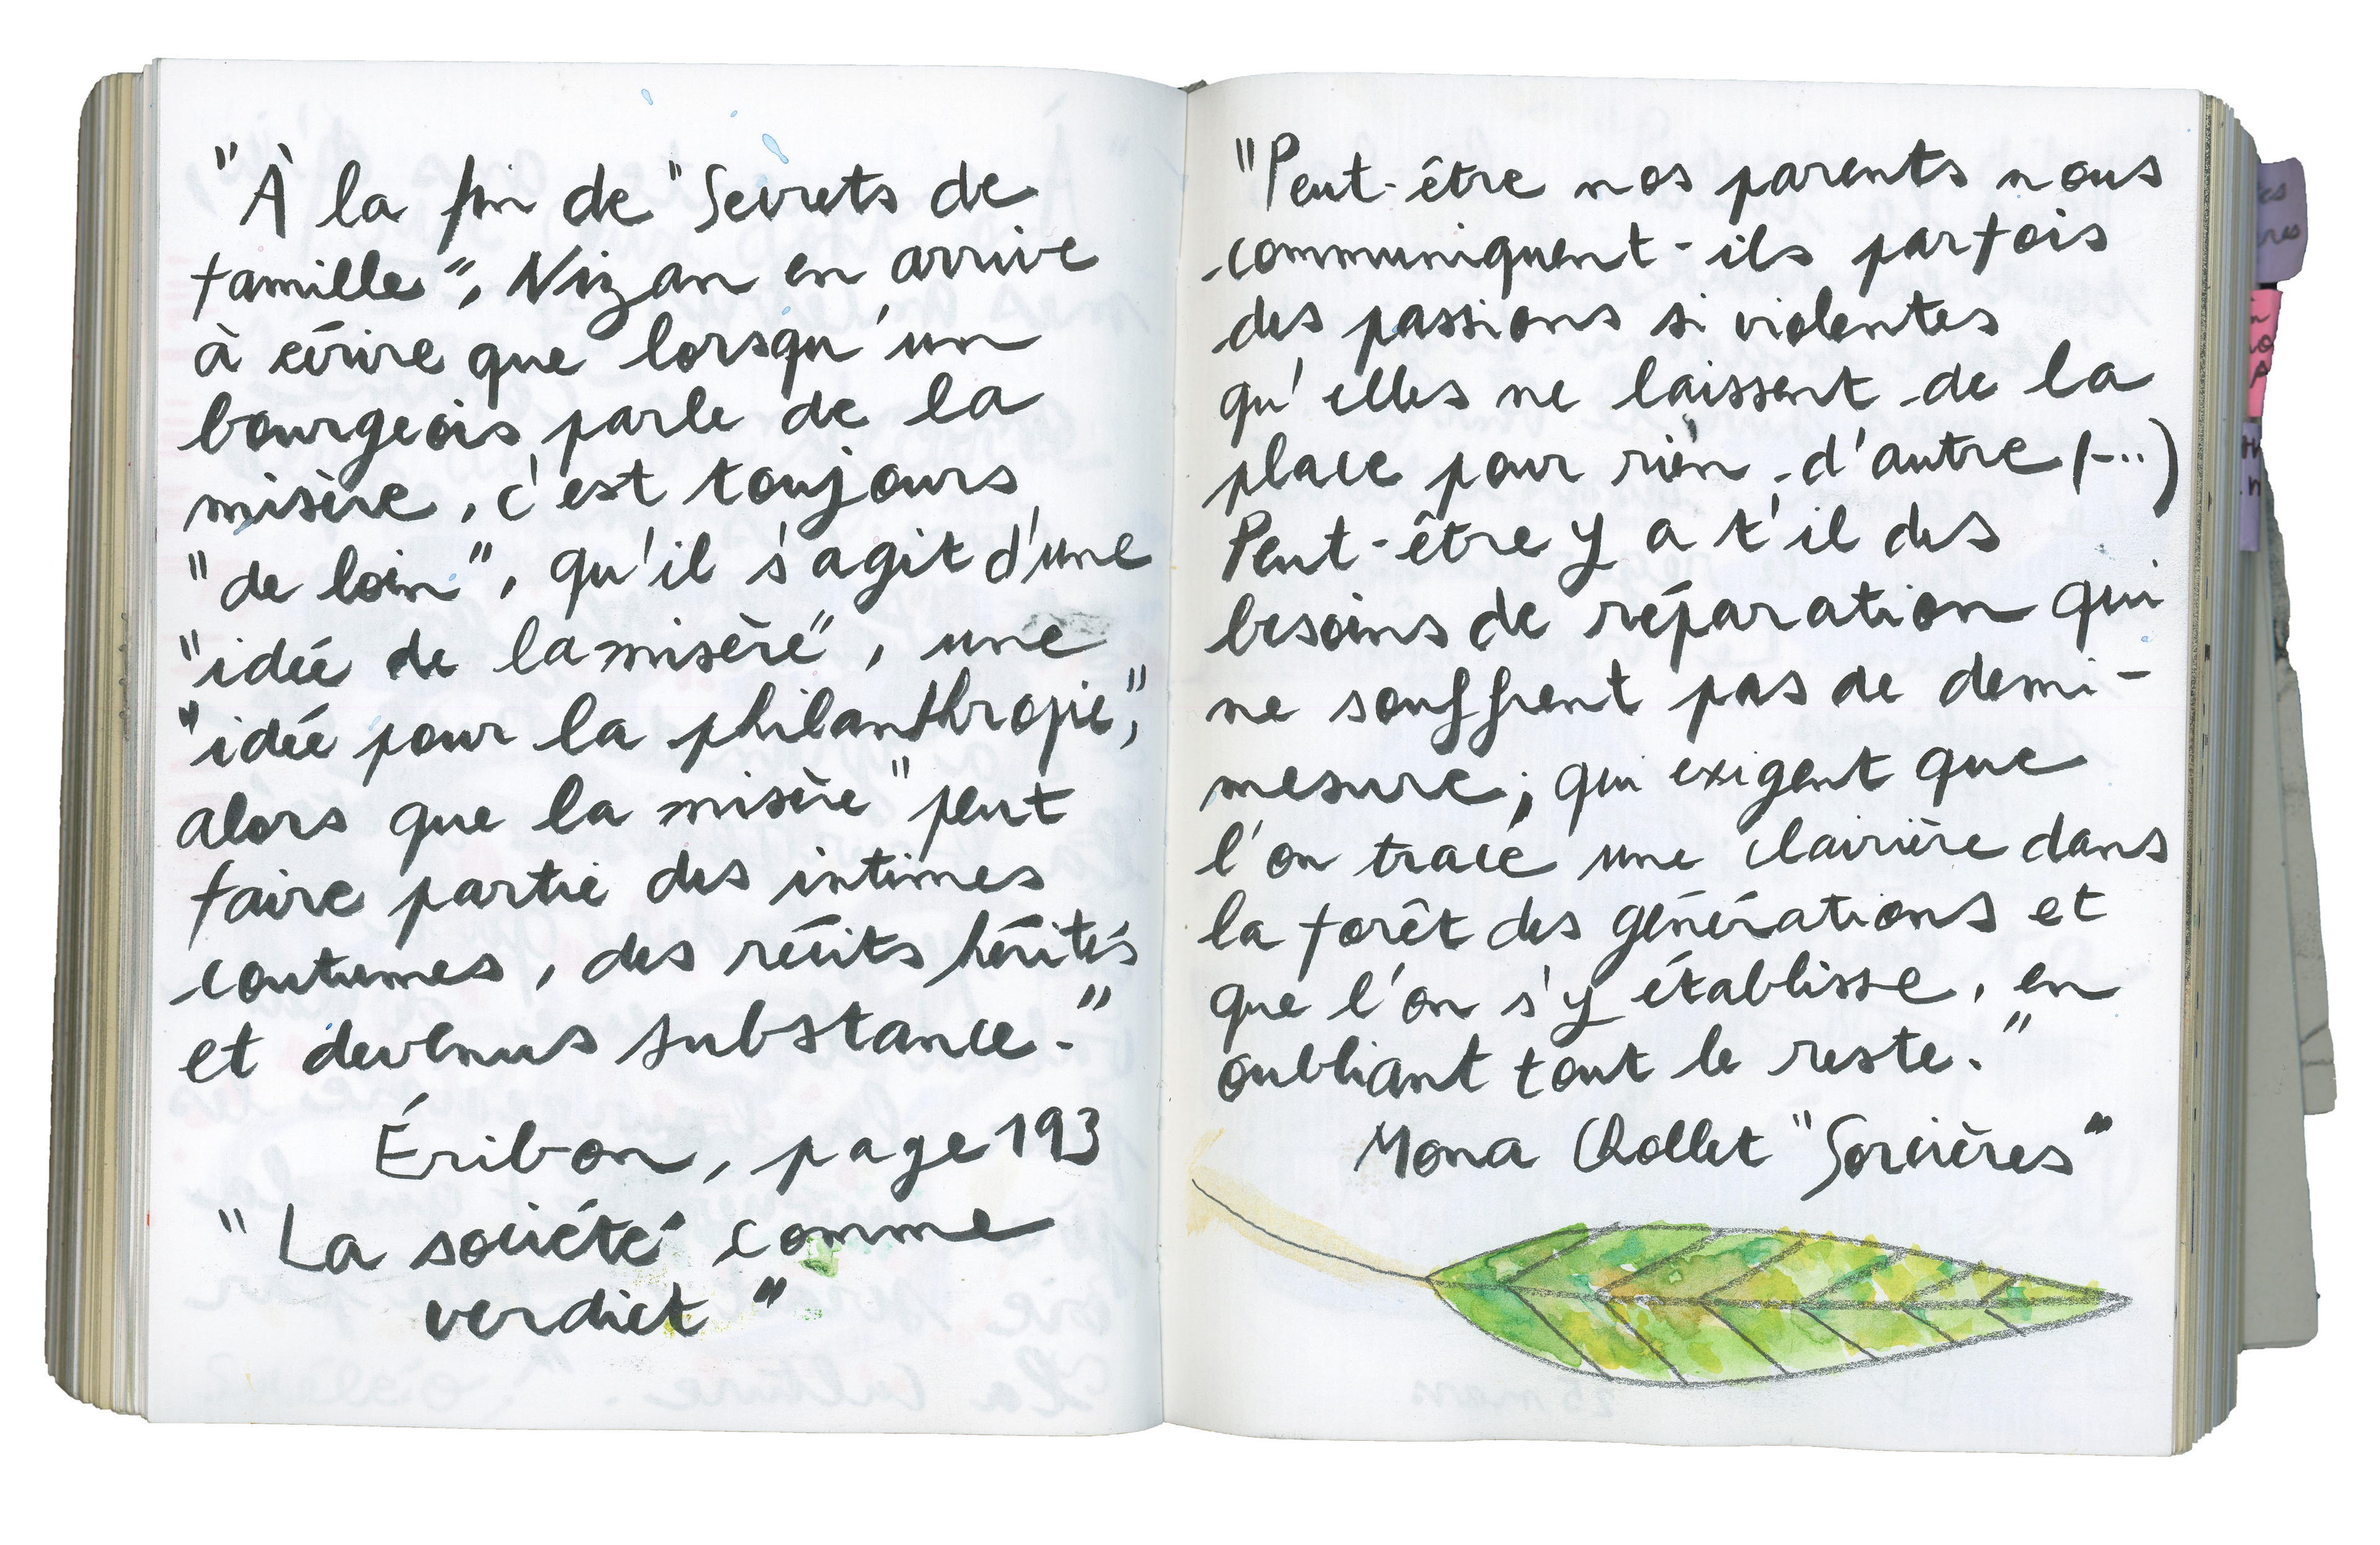 "À la fin de "Secrets de
famille", Nizan en arrive
à écrire que lorsqu'un
bourgeois parle de la
misère, c'est toujours
"de loin", qu'il s'agit d'une
"idée de la misère", une
"idée pour la philanthropie",
alors que la misère "peut
faire partie des intimes
coutumes, des récits hérités
et devenus substance."
Éribon, page 193
"La société comme
verdict"
"Peut-être nos parents nous
communiquent-ils parfois
des passions si violentes
qu'elles ne laissent de la
place pour rien d'autre (...)
Peut-être y a t'il des
besoins de réparation qui
ne souffrent pas de demi-
mesure; qui exigent que
l'on trace une clairière dans
la forêt des générations et
que l'on s'y établisse, en
oubliant tout le reste."
Mona Chollet "Sorcières"